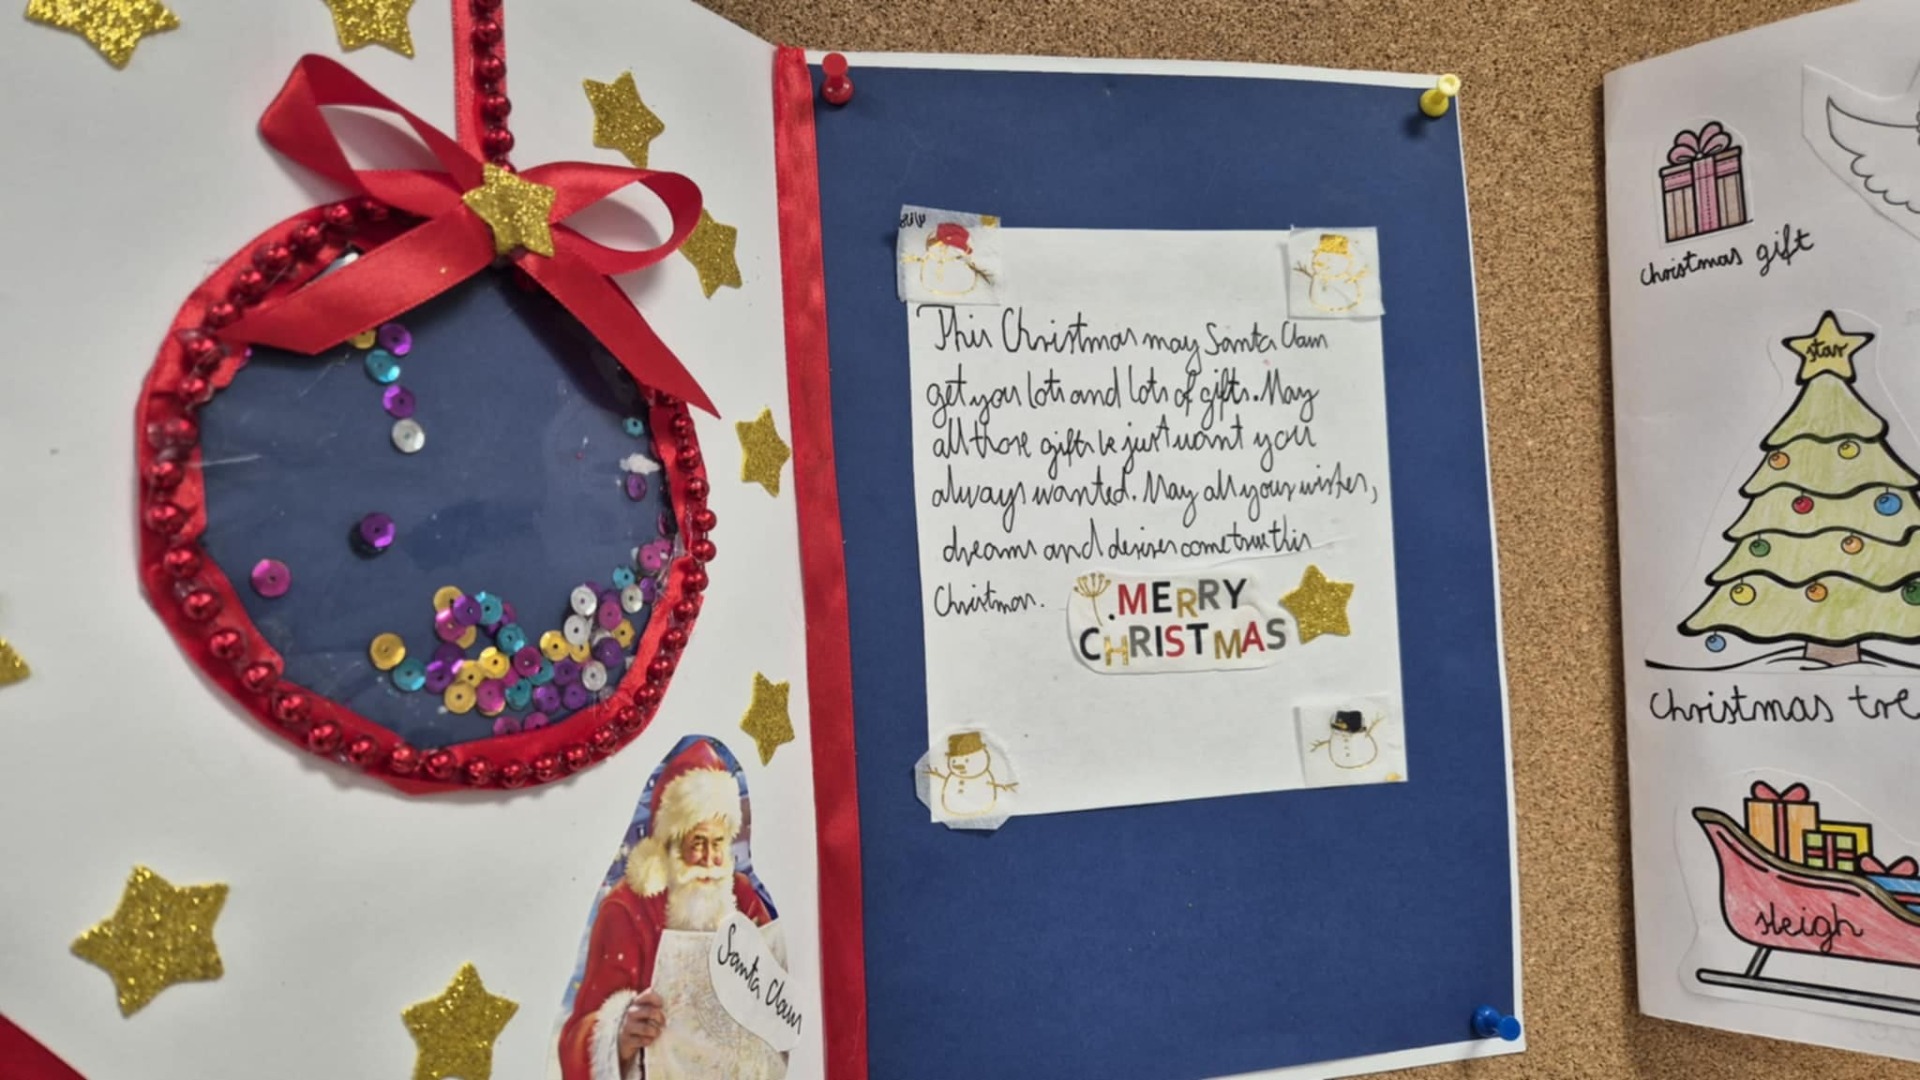 This Christmas may Santa Claus
get you lots and lots of gifts. May
all those gifts be just want you
always wanted. May all your wishes,
dreams and desires come true this
Christmas.
MERRY
CHRISTMAS
Santa Claus
christmas gift
star
christmas tre
sleigh